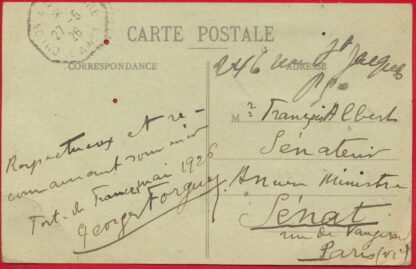 27-5
26
CARTE POSTALE
CORRESPONDANCE
ADRESSE
246 rue St Jacques
Respectueux et re-
connaissant souvenir
Fort-de-France, mai 1926
Georges Forgues
M r François Albert
Sénateur
Ancien Ministre
Sénat
rue de Vaugirard
Paris (VIe)